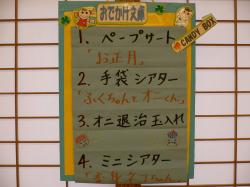 おでかけ文庫
CANDY BOX
1、ペープサート
「お正月」
2、手袋シアター
「ふくちゃんとオーくん」
3、オニ退治玉入れ
4、ミニシアター